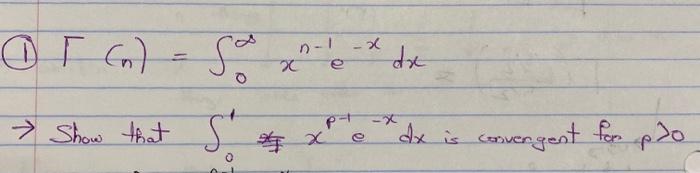 ① Γ (n) = ∫₀^∞ x^{n-1} e^{-x} dx
→ Show that ∫₀^1 x^{p-1} e^{-x} dx is convergent for p>0